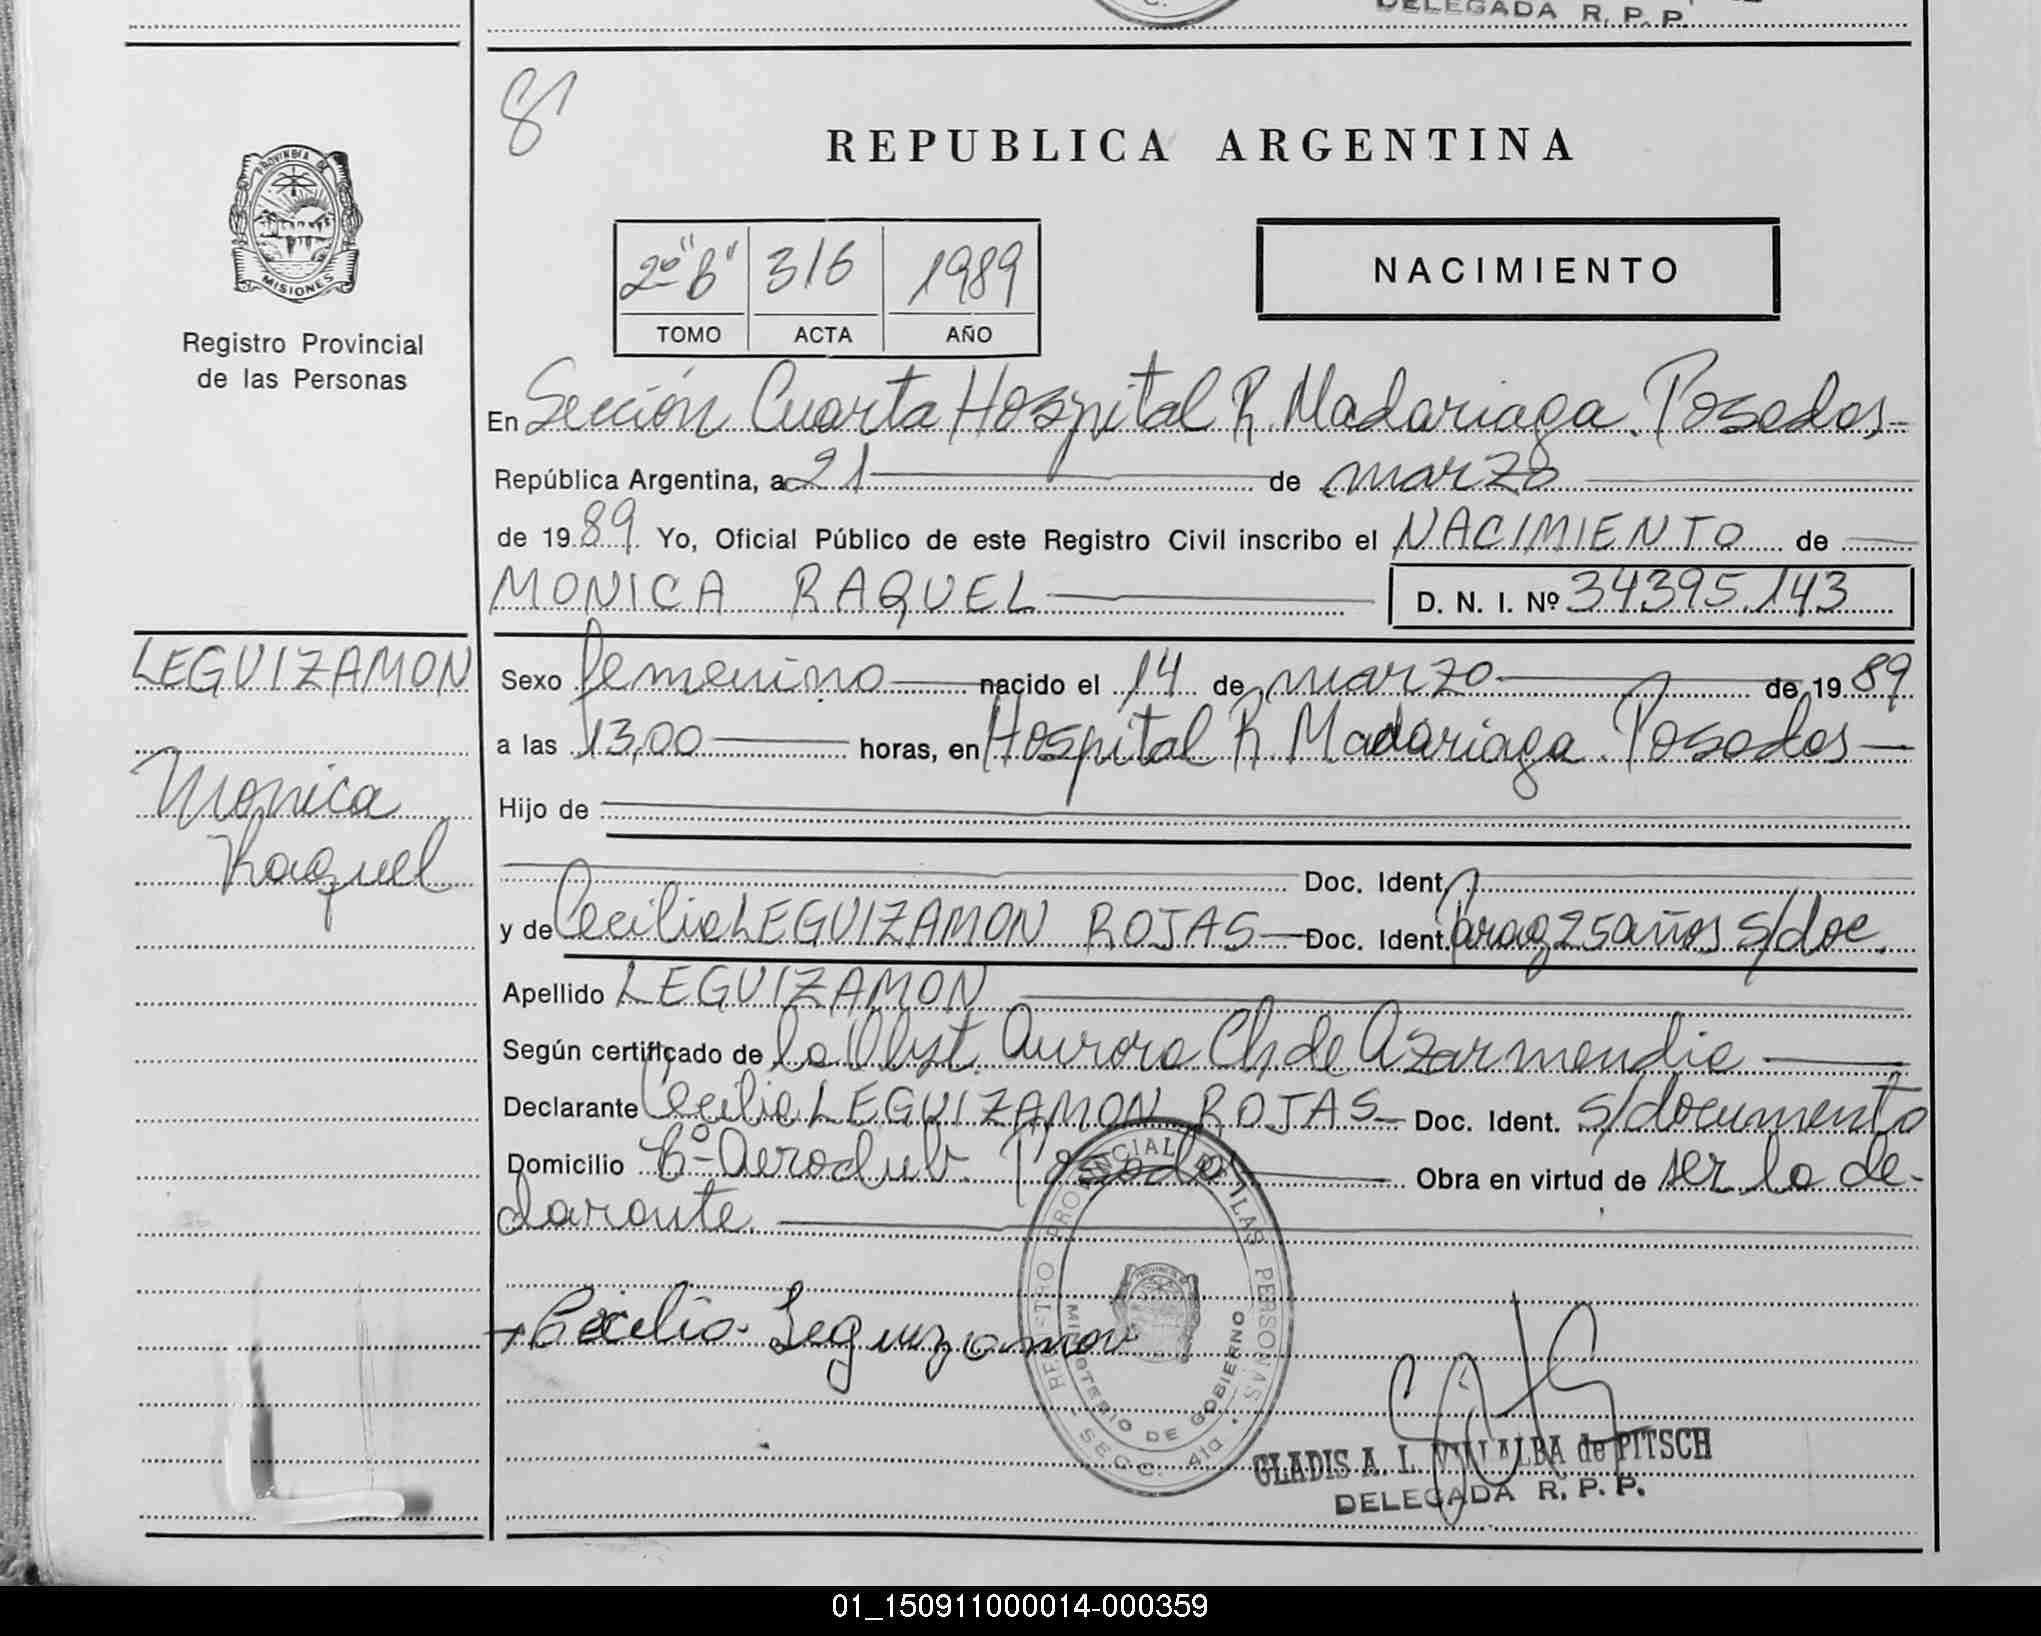 DELEGADA R. P. P.
81
REPUBLICA ARGENTINA
PROVINCIA DE
MISIONES
Registro Provincial
de las Personas
2º "B" 316 1989
TOMO ACTA AÑO
NACIMIENTO
En Sección Cuarta Hospital R. Madariaga. Posadas
República Argentina, a 21 de marzo
de 1989 Yo, Oficial Público de este Registro Civil inscribo el NACIMIENTO de
MONICA RAQUEL D. N. I. Nº 34395.143
LEGUIZAMON
Monica
Raquel
Sexo femenino nacido el 14 de marzo de 1989
a las 13,00 horas, en Hospital R. Madariaga. Posadas
Hijo de
Doc. Ident.
y de Cecilia LEGUIZAMON ROJAS Doc. Ident. parag 25 años s/doc.
Apellido LEGUIZAMON
Según certificado de la Obst. Aurora Ch de Azarmendia
Declarante Cecilia LEGUIZAMON ROJAS Doc. Ident. s/documento
Domicilio Bº Aeroclub. Posadas Obra en virtud de ser la de-
clarante.
Cecilia Leguizamon
REGISTRO PROVINCIAL DE LAS PERSONAS
MINISTERIO DE GOBIERNO
SECC. 4ta.
GLADIS A. L. VILLALBA de PITSCH
DELEGADA R. P. P.
01_150911000014-000359